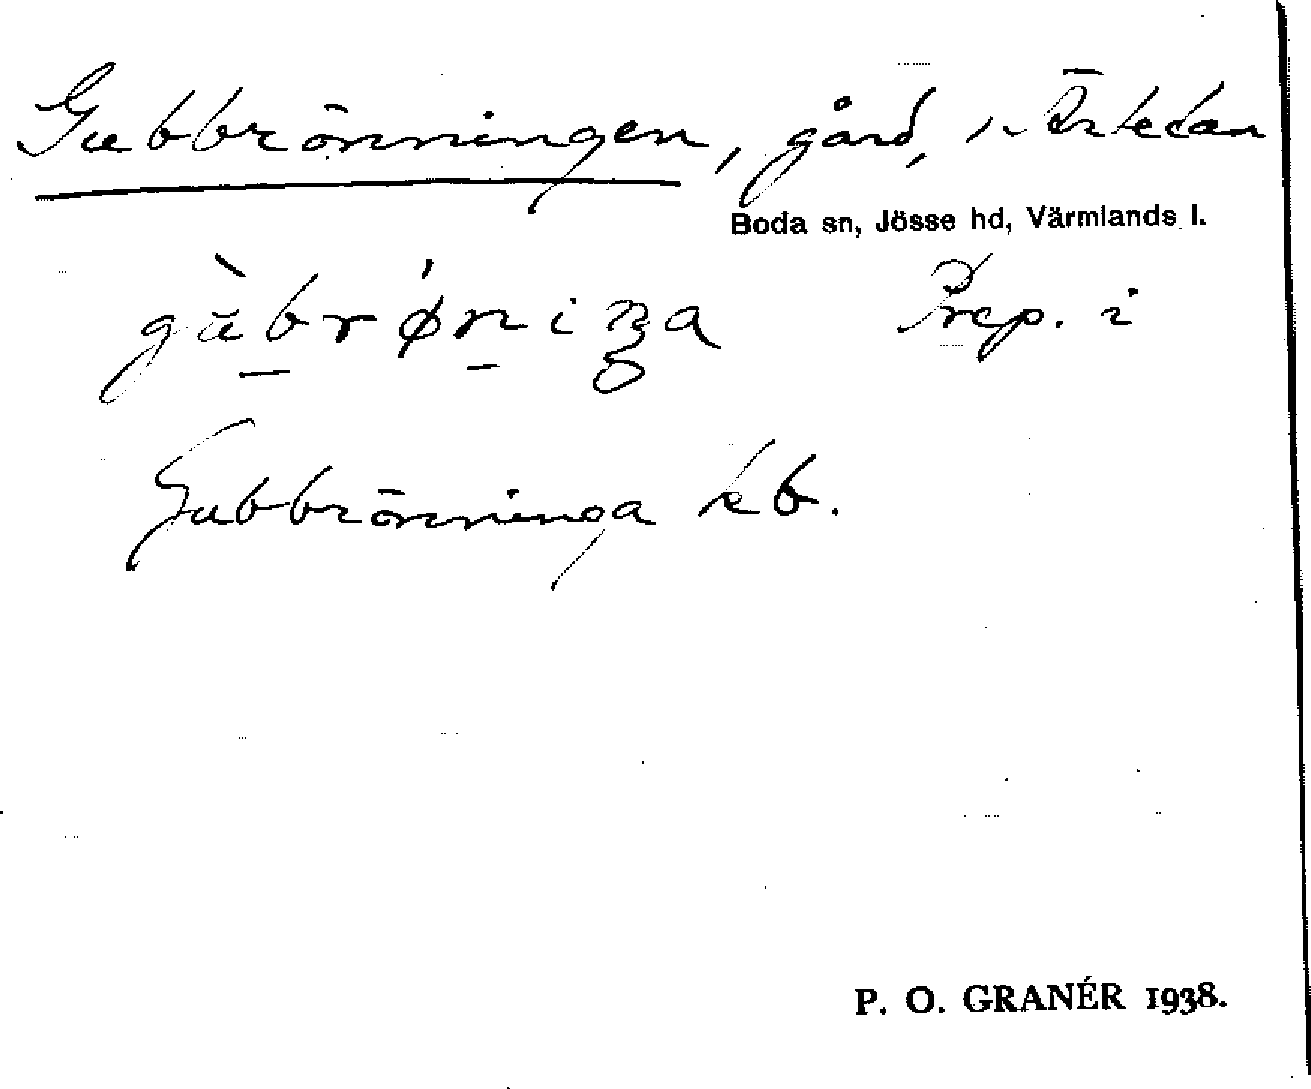 Gubbrönningen, gård,
Boda sn, Jösse hd, Värmlands l.
gùbrǿniŋa Prep. i
Gubbrönninga kb.
P. O. GRANÉR 1938.